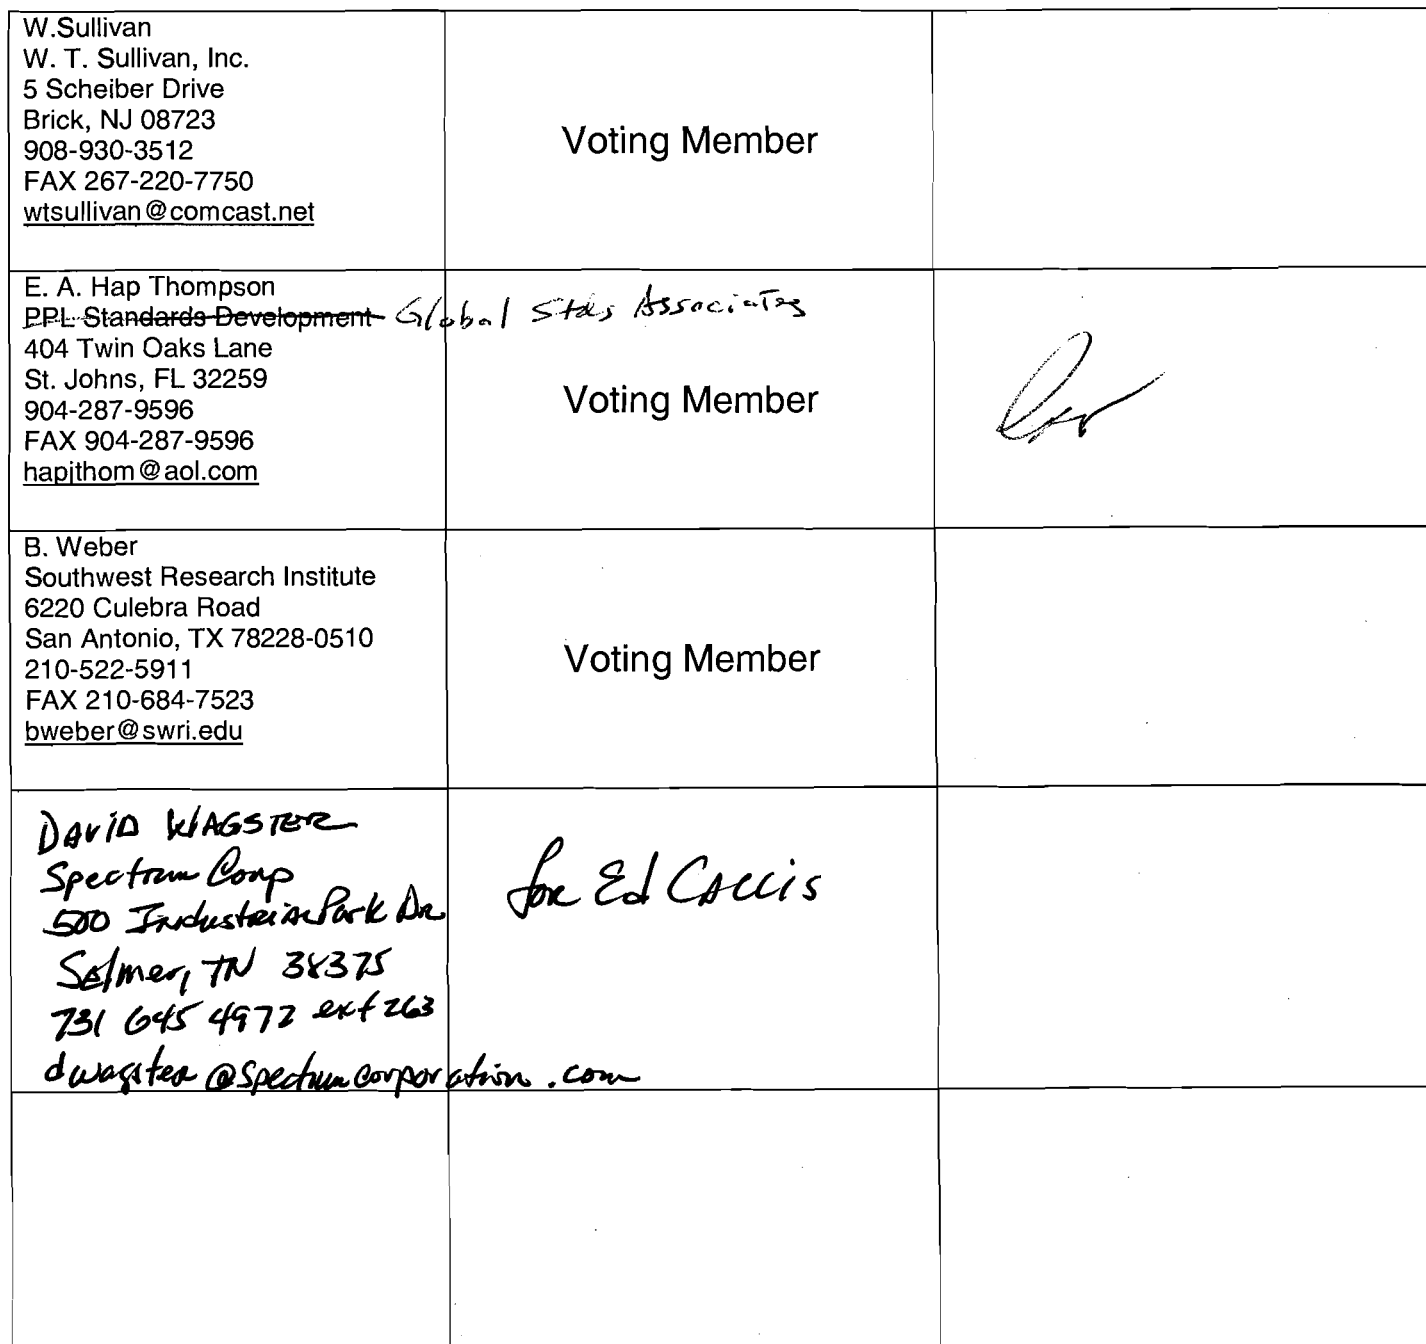 W.Sullivan
W. T. Sullivan, Inc.
5 Scheiber Drive
Brick, NJ 08723
908-930-3512
FAX 267-220-7750
wtsullivan@comcast.net
Voting Member
E. A. Hap Thompson
PPL Standards Development Global Stds Associates
404 Twin Oaks Lane
St. Johns, FL 32259
904-287-9596
FAX 904-287-9596
hapjthom@aol.com
Voting Member
B. Weber
Southwest Research Institute
6220 Culebra Road
San Antonio, TX 78228-0510
210-522-5911
FAX 210-684-7523
bweber@swri.edu
Voting Member
DAVID WAGSTER
Spectrum Corp
500 Industrial Park Dr
Selmer, TN 38375
731 645 4972 ext 263
dwagster@spectrumcorporation.com
for Ed CALLIS